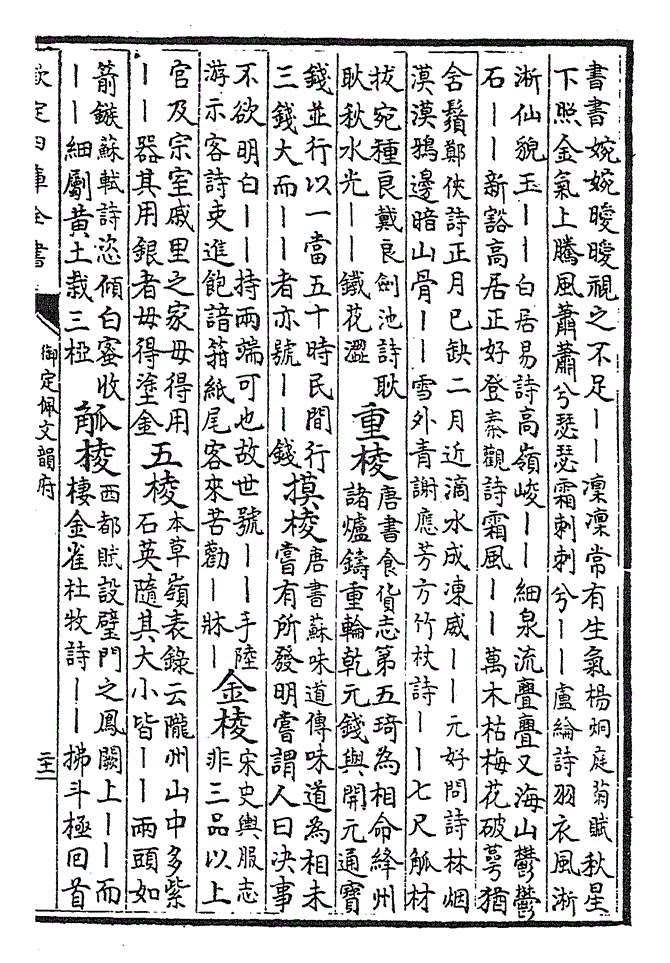 書書婉婉曖曖視之不足丨丨凜凜常有生氣楊烱庭菊賦秋星
下照金氣上騰風蕭蕭兮瑟瑟霜刺刺兮丨丨盧綸詩羽衣風淅
淅仙貌玉丨丨白居易詩高嶺峻丨丨細泉流亹亹又海山鬱鬱
石丨丨新豁高居正好登秦觀詩霜風丨丨萬木枯梅花破萼猶
含鬚鄭俠詩正月已缺二月近滴水成凍威丨丨元好問詩林烟
漠漠鴉邊暗山骨丨丨雪外青謝應芳方竹杖詩丨丨七尺觚材
拔宛種良戴良劍池詩耿
耿秋水光丨丨鐵花澀
重稜
唐書食貨志第五琦為相命絳州
諸爐鑄重輪乾元錢與開元通寳
錢並行以一當五十時民間行
三錢大而丨丨者亦號丨丨錢
摸稜
唐書蘇味道傳味道為相未
嘗有所發明嘗謂人曰決事
不欲明白丨丨持兩端可也故世號丨丨手陸
游示客詩吏進飽諳箝紙尾客來苦勸丨牀丨
金稜
宋史輿服志
非三品以上
官及宗室戚里之家毋得用
丨丨器其用銀者毋得塗金
五稜
本草嶺表錄云隴州山中多紫
石英隨其大小皆丨丨兩頭如
箭鏃蘇軾詩恣傾白蜜收
丨丨細劚黄土栽三椏
觚稜
西都賦設璧門之鳳闕上丨丨而
棲金雀杜牧詩丨丨拂斗極回首
欽定四庫全書
御定佩文韻府